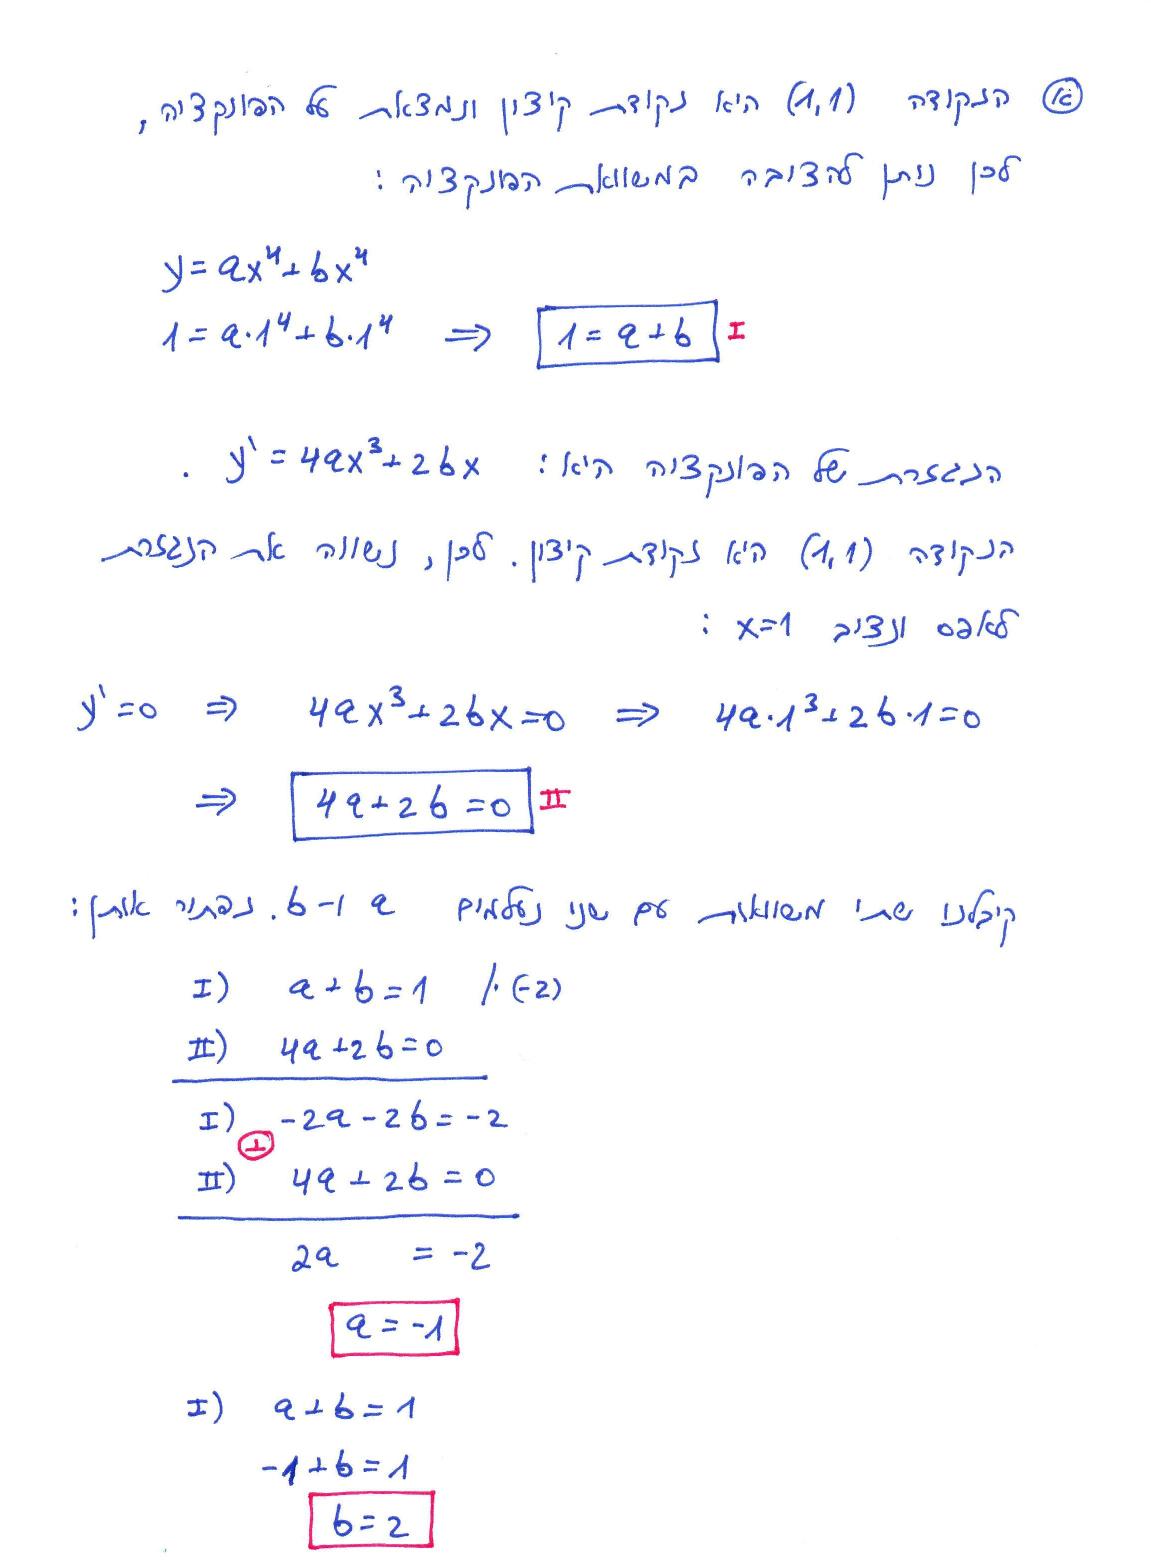 א הנקודה (1,1) היא נקודת קיצון ונמצאת על הפונקציה,
לכן ניתן להציבה במשוואת הפונקציה:
y = ax⁴ + bx⁴
1 = a·1⁴ + b·1⁴ ⇒ 1 = a + b I
הנגזרת של הפונקציה היא: y' = 4ax³ + 2bx .
הנקודה (1,1) היא נקודת קיצון. לכן, נשווה את הנגזרת
לאפס ונציב x=1 :
y' = 0 ⇒ 4ax³ + 2bx = 0 ⇒ 4a·1³ + 2b·1 = 0
⇒ 4a + 2b = 0 II
קיבלנו שתי משוואות עם שני נעלמים a ו-b. נפתור אותן:
I) a + b = 1 /·(-2)
II) 4a + 2b = 0
I) -2a - 2b = -2
+
II) 4a + 2b = 0
2a = -2
a = -1
I) a + b = 1
-1 + b = 1
b = 2